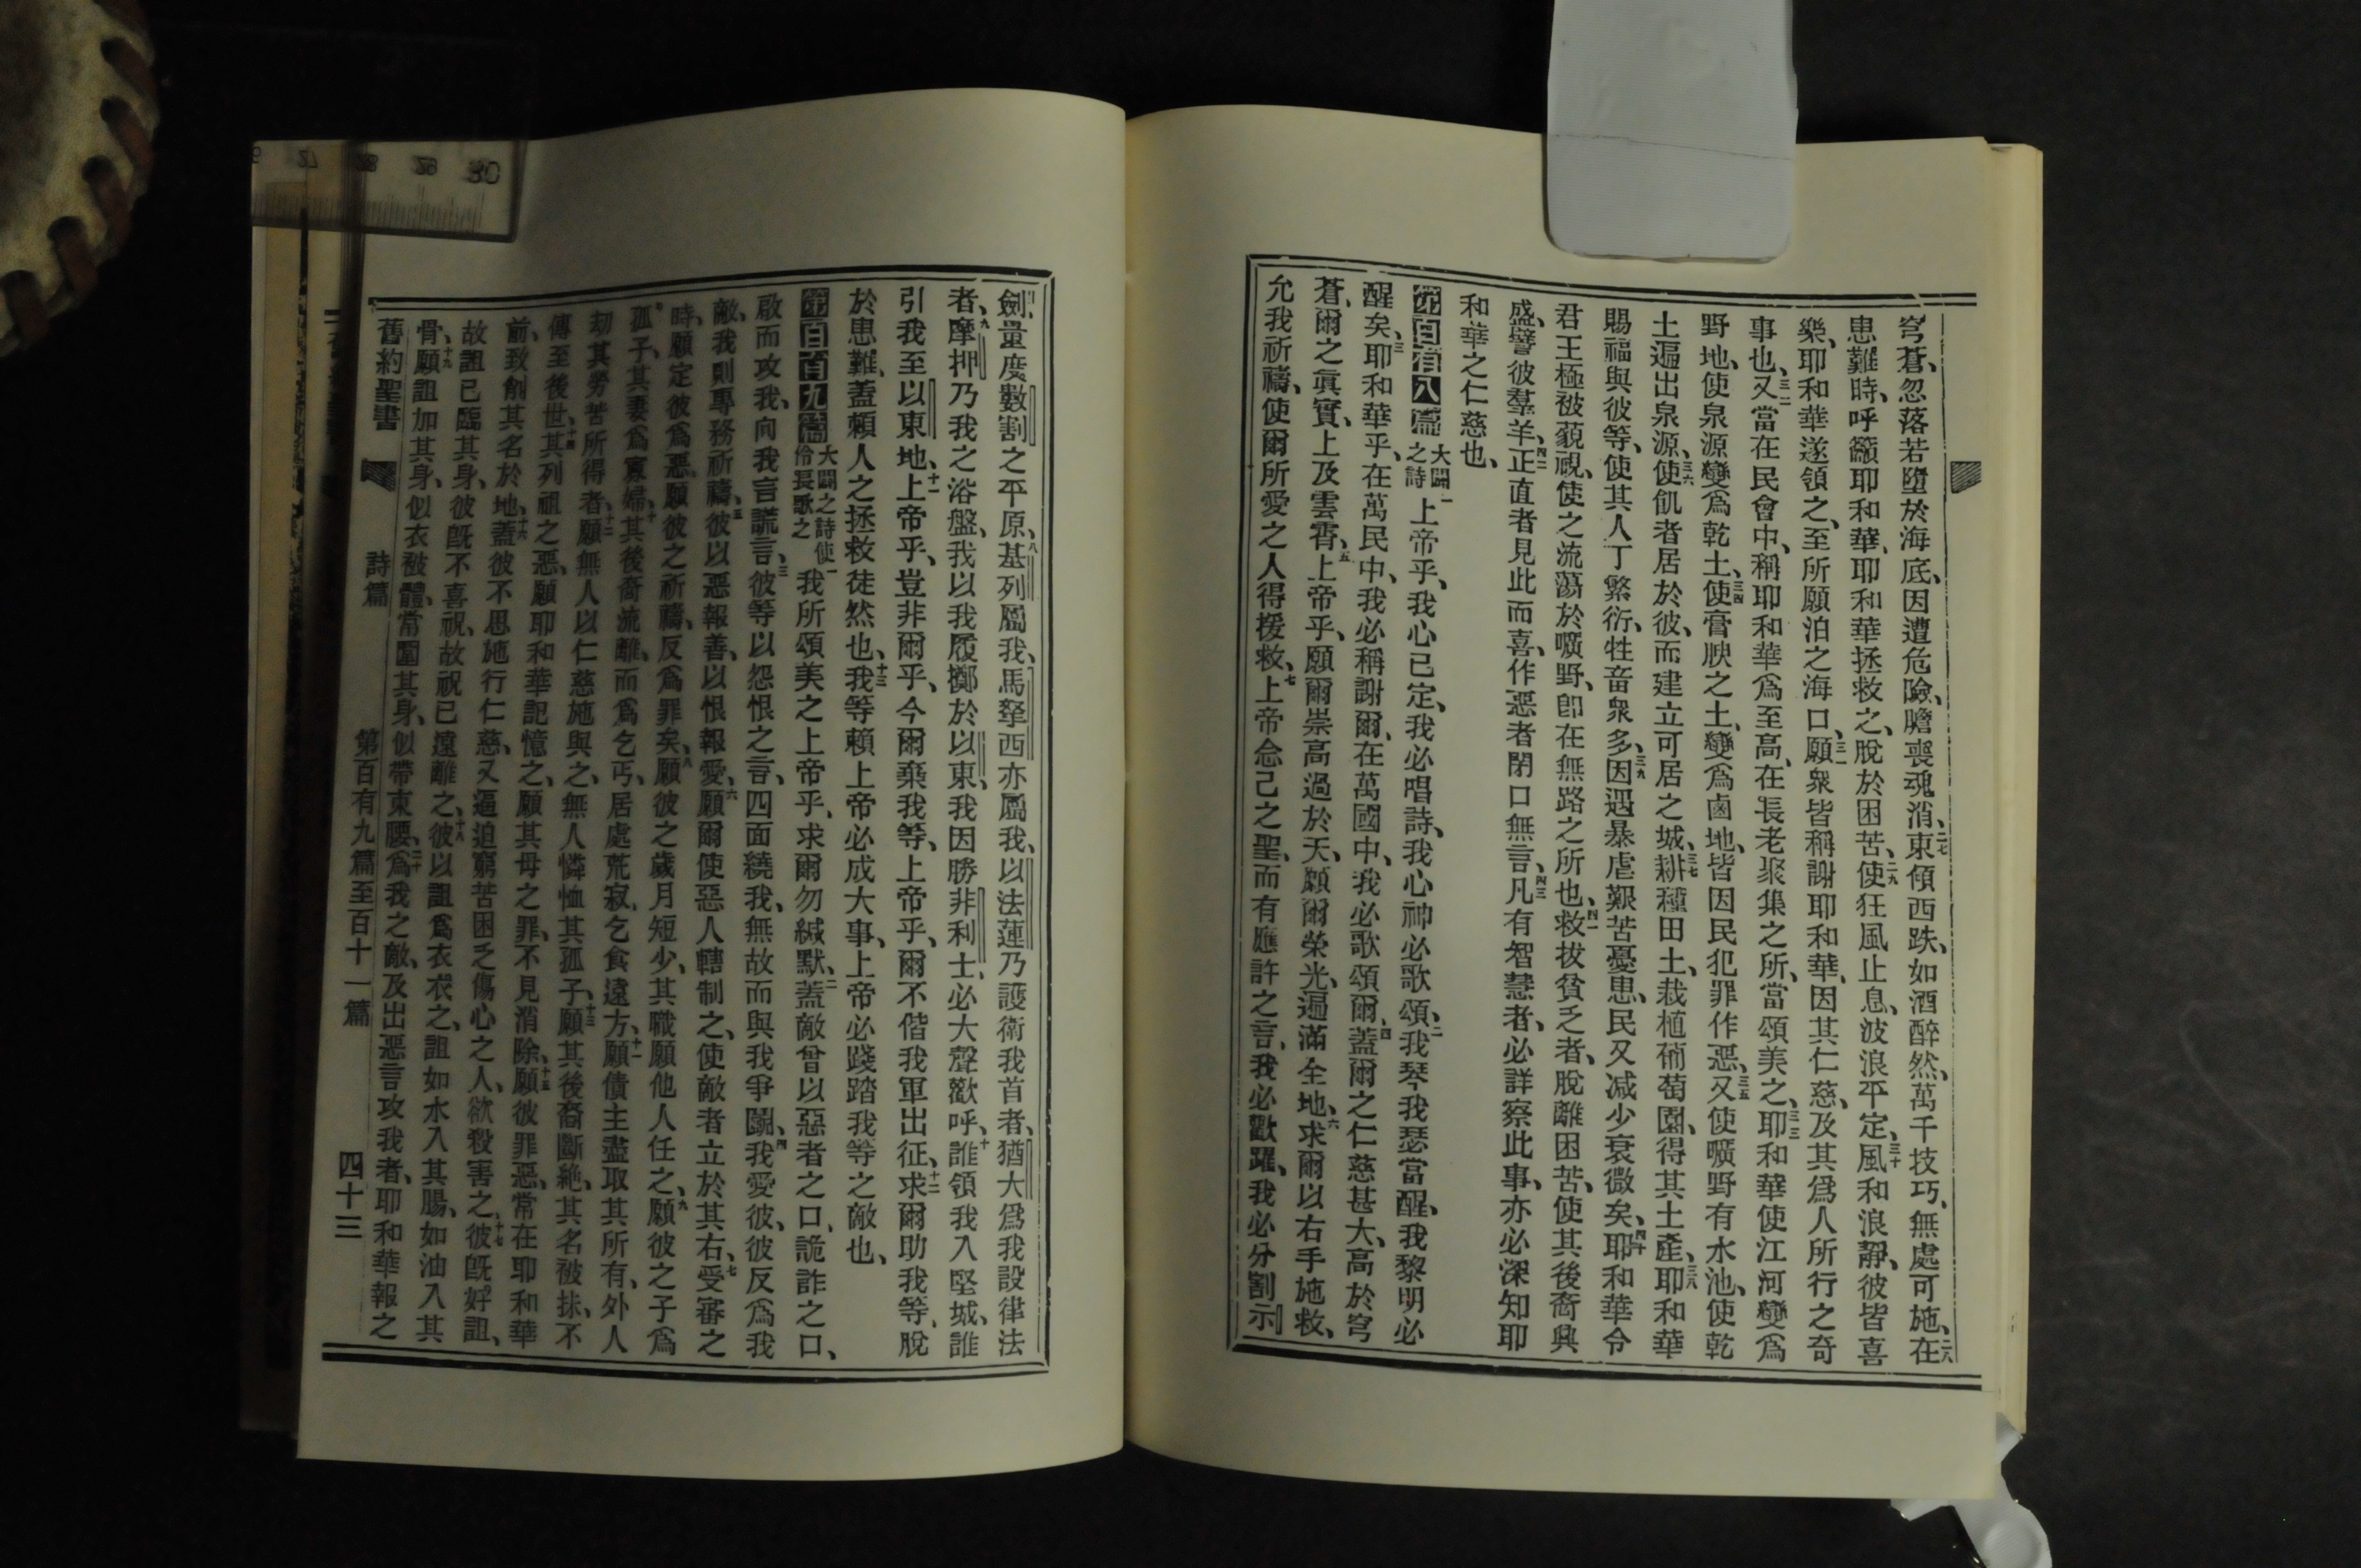 穹蒼、忽落若墮於海底、因遭危險、膽喪魂消、二七東傾西跌、如酒醉然、萬千技巧、無處可施、二八在
患難時、呼籲耶和華、耶和華拯救之、脫於困苦、二九使狂風止息、波浪平定、三十風和浪靜、彼皆喜
樂、耶和華遂領之、至所願泊之海口、三一願衆皆稱謝耶和華、因其仁慈、及其爲人所行之奇
事也、三二又當在民會中、稱耶和華爲至高、在長老聚集之所、當頌美之、三三耶和華使江河變爲
野地、使泉源變爲乾土、三四使膏腴之土、變爲鹵地、皆因民犯罪作惡、三五又使曠野有水池、使乾
土遍出泉源、三六使飢者居於彼、而建立可居之城、三七耕種田土、栽植葡萄園、得其土產、三八耶和華
賜福與彼等、使其人丁繁衍、牲畜衆多、三九因遇暴虐艱苦憂患、民又減少衰微矣、四十耶和華令
君王極被藐視、使之流蕩於曠野、卽在無路之所也、四一救拔貧乏者、脫離困苦、使其後裔興
盛、譬彼羣羊、四二正直者見此而喜、作惡者閉口無言、四三凡有智慧者、必詳察此事、亦必深知耶
和華之仁慈也、
第百有八篇 大闢之詩 一上帝乎、我心已定、我必唱詩、我心神必歌頌、二我琴我瑟當醒、我黎明必
醒矣、三耶和華乎、在萬民中、我必稱謝爾、在萬國中、我必歌頌爾、四蓋爾之仁慈甚大、高於穹
蒼、爾之眞實、上及雲霄、五上帝乎、願爾崇高過於天、願爾榮光、遍滿全地、六求爾以右手施救、
允我祈禱、使爾所愛之人得援救、七上帝念己之聖、而有應許之言、我必歡躍、我必分割示
劍、量度數割之平原、八基列屬我、馬拏西亦屬我、以法蓮乃護衛我首者、猶大爲我設律法
者、九摩押乃我之浴盤、我以我履擲於以東、我因勝非利士、必大聲歡呼、十誰領我入堅城、誰
引我至以東地、十一上帝乎、豈非爾乎、今爾棄我等、上帝乎、爾不偕我軍出征、十二求爾助我等、脫
於患難、蓋賴人之拯救徒然也、十三我等賴上帝必成大事、上帝必踐踏我等之敵也、
第百有九篇 大闢之詩使伶長歌之 一我所頌美之上帝乎、求爾勿緘默、二蓋敵曾以惡者之口、詭詐之口、
啟而攻我、向我言謊言、三彼等以怨恨之言、四面繞我、無故而與我爭鬬、四我愛彼、彼反爲我
敵、我則專務祈禱、五彼以惡報善、以恨報愛、六願爾使惡人轄制之、使敵者立於其右、七受審之
時、願定彼爲惡、願彼之祈禱、反爲罪矣、八願彼之歲月短少、其職願他人任之、九願彼之子爲
孤子、其妻爲寡婦、十其後裔流離、而爲乞丐、居處荒寂、乞食遠方、十一願債主盡取其所有、外人
劫其勞苦所得者、十二願無人以仁慈施與之、無人憐恤其孤子、十三願其後裔斷絶、其名被抹、不
傳至後世、十四其列祖之惡、願耶和華記憶之、願其母之罪、不見消除、十五願彼罪惡、常在耶和華
前、致創其名於地、十六蓋彼不思施行仁慈、又逼迫窮苦困乏傷心之人、欲殺害之、十七彼旣好詛、
故詛已臨其身、彼旣不喜祝、故祝已遠離之、十八彼以詛爲衣衣之、詛如水入其腸、如油入其
骨、十九願詛加其身、似衣被體、常圍其身、似帶束腰、二十爲我之敵、及出惡言攻我者、耶和華報之
舊約聖書 詩篇 第百有九篇至百十一篇 四十三
27 28 29 30